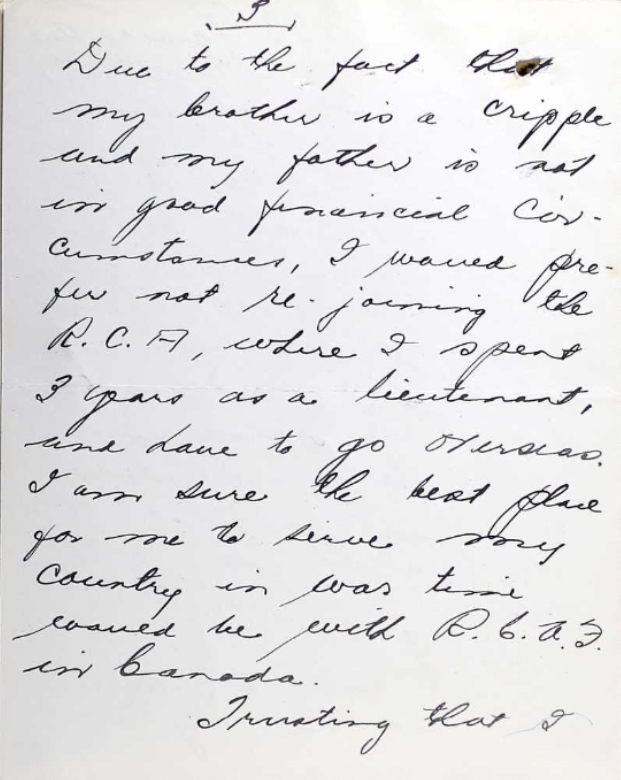 3
Due to the fact that
my brother is a cripple
and my father is not
in good financial cir-
cumstances, I would pre-
fer not re-joining the
R.C.A, where I spent
3 years as a lieutenant,
and have to go overseas.
I am sure the best place
for me to serve my
country in war time
would be with R.C.A.F.
in Canada.
Trusting that I